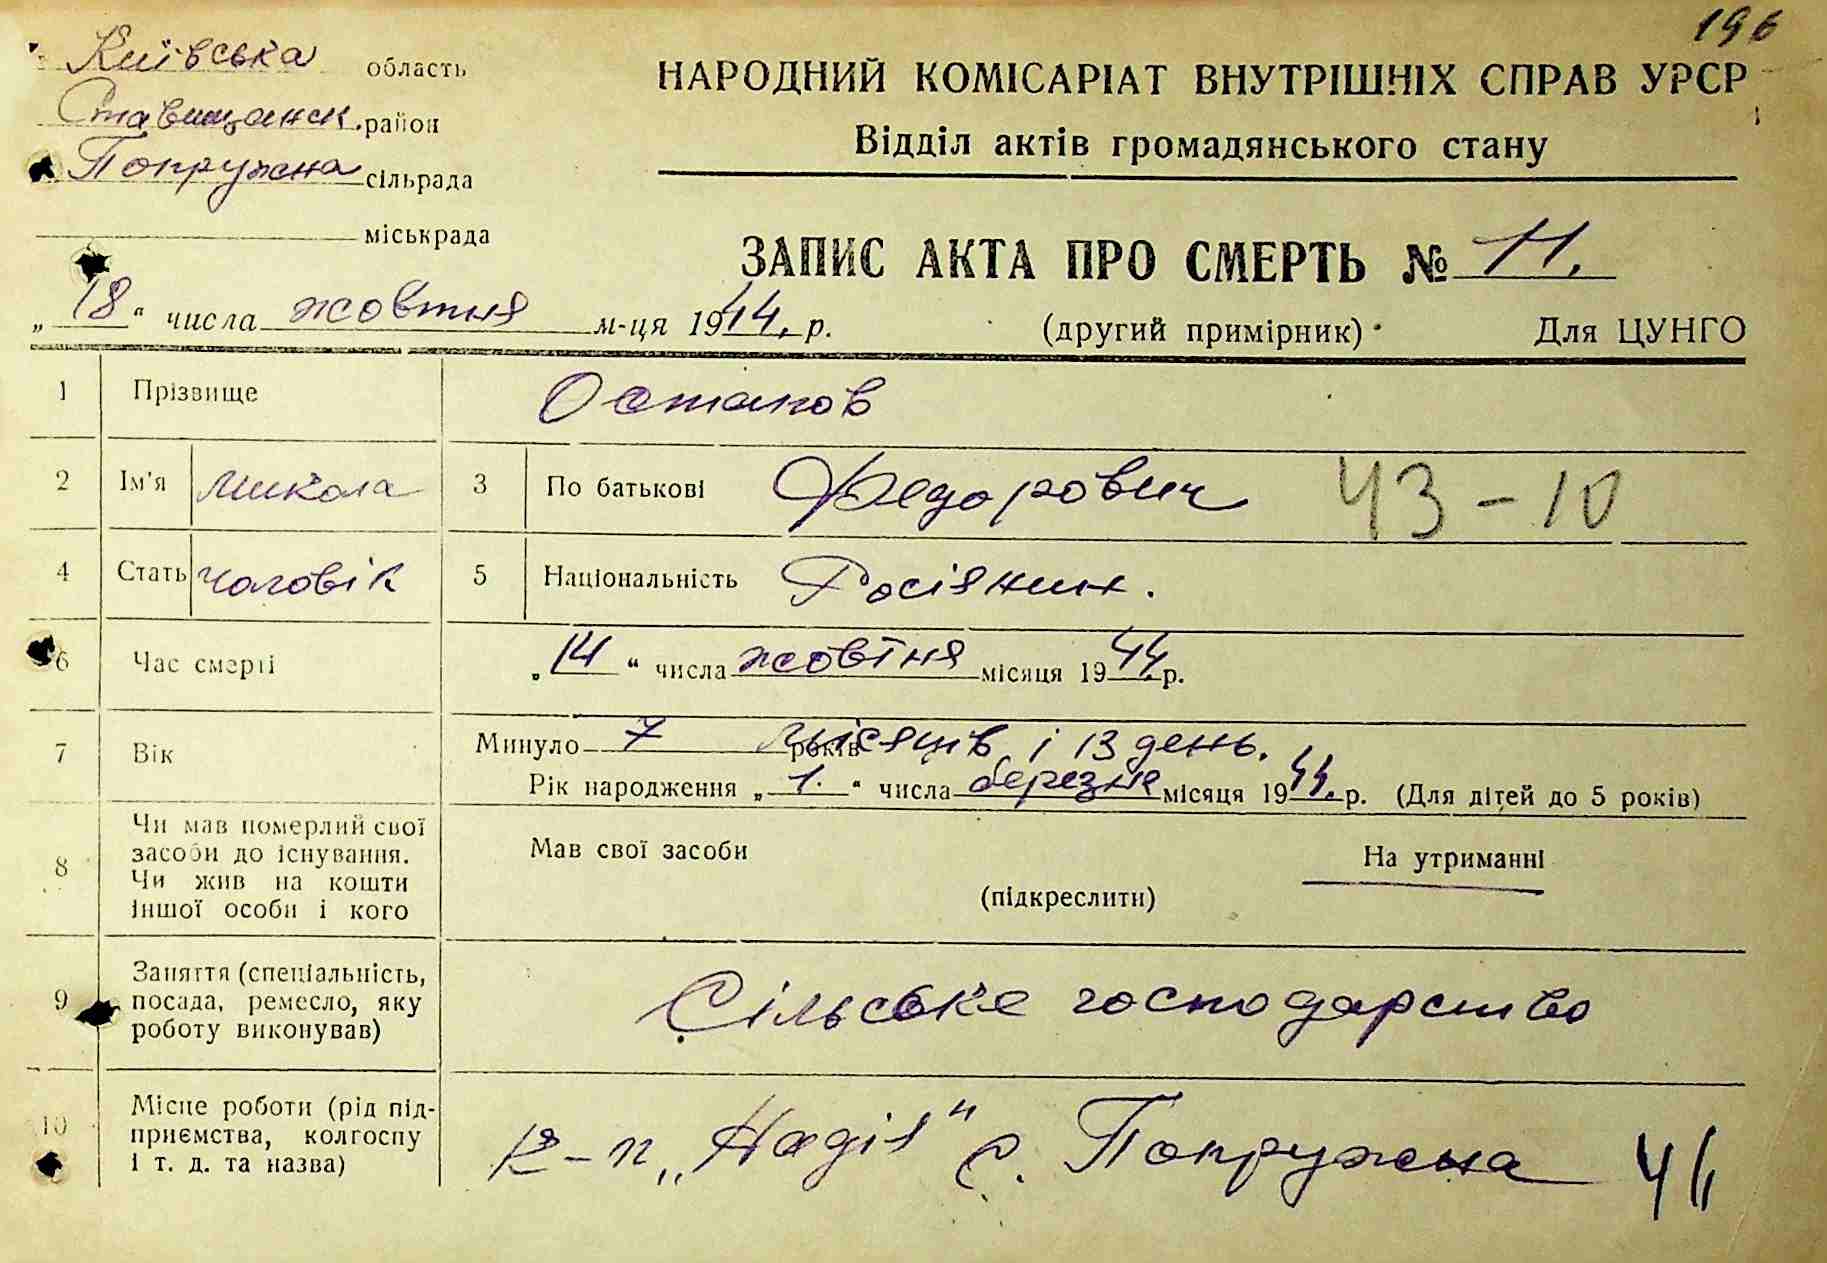 196
Київська область
Ставищанск. район
Попружна сільрада
міськрада
НАРОДНИЙ КОМІСАРІАТ ВНУТРІШНІХ СПРАВ УРСР
Відділ актів громадянського стану
ЗАПИС АКТА ПРО СМЕРТЬ № 11.
„18“ числа жовтня м-ця 1944. р.
(другий примірник) Для ЦУНГО
1 Прізвище Остапов
2 Ім'я Микола 3 По батькові Федорович 43-10
4 Стать чоловік 5 Національність Росіянин.
6 Час смерті „14“ числа жовтня місяця 1944. р.
7 Вік Минуло 7 років місяців і 13 день.
Рік народження „1.“ числа березня місяця 1944. р. (Для дітей до 5 років)
8 Чи мав померлий свої засоби до існування. Чи жив на кошти іншої особи і кого
Мав свої засоби На утриманні
(підкреслити)
9 Заняття (спеціальність, посада, ремесло, яку роботу виконував) Сільське господарство
10 Місце роботи (рід підприємства, колгоспу і т. д. та назва) к-п „Надія“ с. Попружна